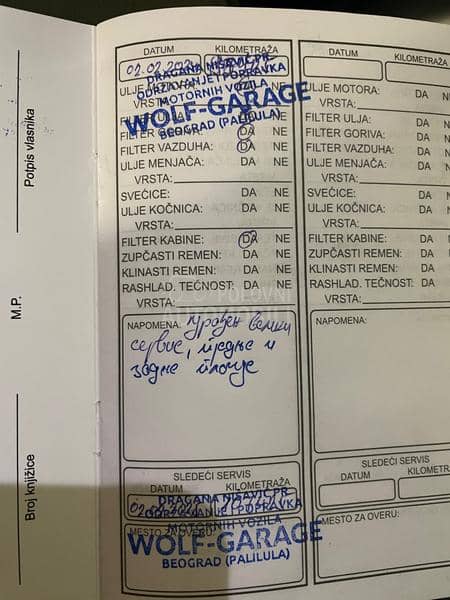 Potpis vlasnika
M.P.
Broj knjižice
DATUM KILOMETRAŽA
DRAGANA NISAVIC PR
ODRŽAVANJE I POPRAVKA
MOTORNIH VOZILA
WOLF-GARAGE
BEOGRAD (PALILULA)
VRSTA:
FILTER VAZDUHA: DA NE
ULJE MENJAČA: DA NE
VRSTA:
SVEĆICE: DA NE
ULJE KOČNICA: DA NE
VRSTA:
FILTER KABINE: DA NE
ZUPČASTI REMEN: DA NE
KLINASTI REMEN: DA NE
RASHLAD. TEČNOST: DA NE
VRSTA:
NAPOMENA: урађен велики
сервис, предње и
задње плочице
SLEDEĆI SERVIS
DATUM KILOMETRAŽA
DRAGANA NISAVIC PR
ODRŽAVANJE I POPRAVKA
MOTORNIH VOZILA
MESTO ZA OVERU:
WOLF-GARAGE
BEOGRAD (PALILULA)
DATUM KILOMETRAŽA
ULJE MOTORA: DA NE
VRSTA:
FILTER ULJA: DA
FILTER GORIVA: DA
FILTER VAZDUHA: DA
ULJE MENJAČA: DA
VRSTA:
SVEĆICE: DA
ULJE KOČNICA: DA
VRSTA:
FILTER KABINE: DA
ZUPČASTI REMEN: DA
KLINASTI REMEN: DA
RASHLAD. TEČNOST: DA
VRSTA:
NAPOMENA:
SLEDEĆI SERVIS
DATUM KILOMETR
MESTO ZA OVERU: